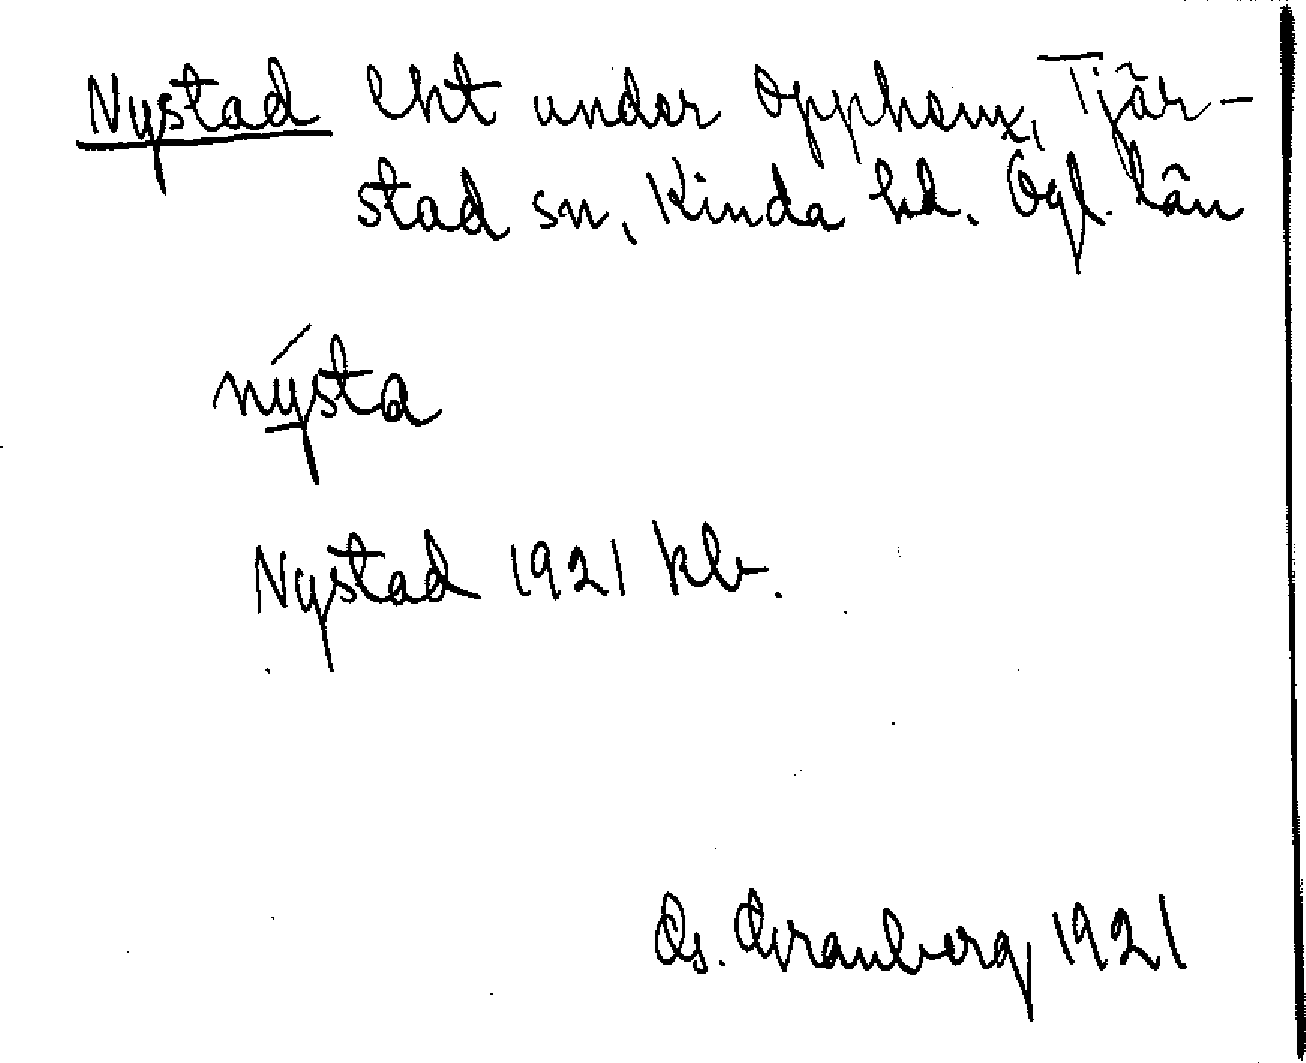 Nystad lht under Opphem, Tjär-
stad sn, Kinda hd. Ögl. län
nýsta
Nystad 1921 kb.
Gs. Granberg 1921